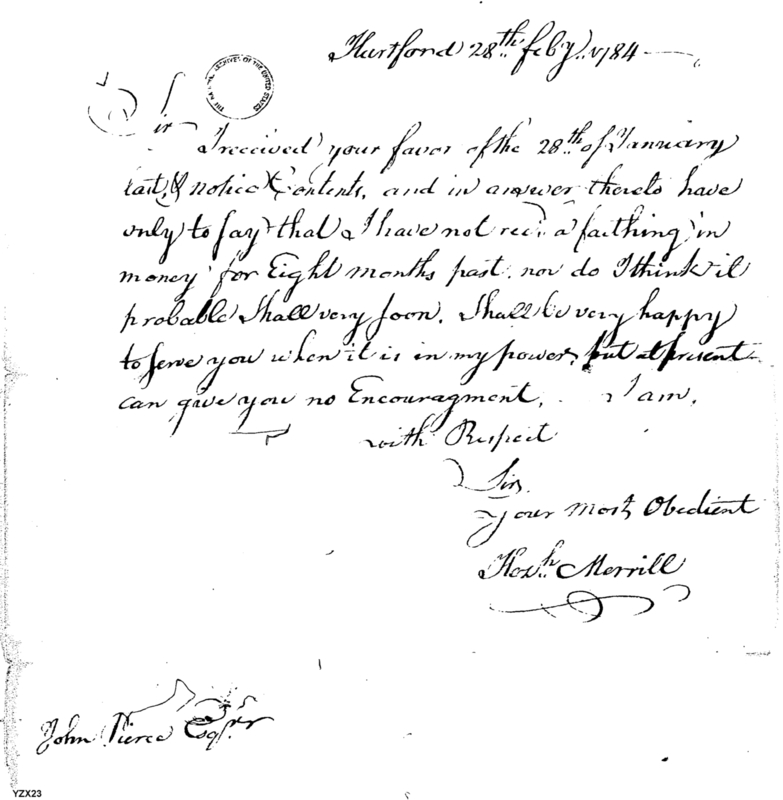 Hartford 28th. feby. 1784
THE NATIONAL ARCHIVES OF THE UNITED STATES
Sir
I received your favor of the 28th. of January
last, & notice Contents, and in answer thereto have
only to say that I have not recd. a farthing in
money for Eight months past, nor do I think it
probable Shall very soon. Shall be very happy
to serve you when it is in my power, but at present
can give you no Encouragment, I am,
with Respect
Sir
your most Obedient
Hezh. Merrill
John Pierce Esqr.
YZX23